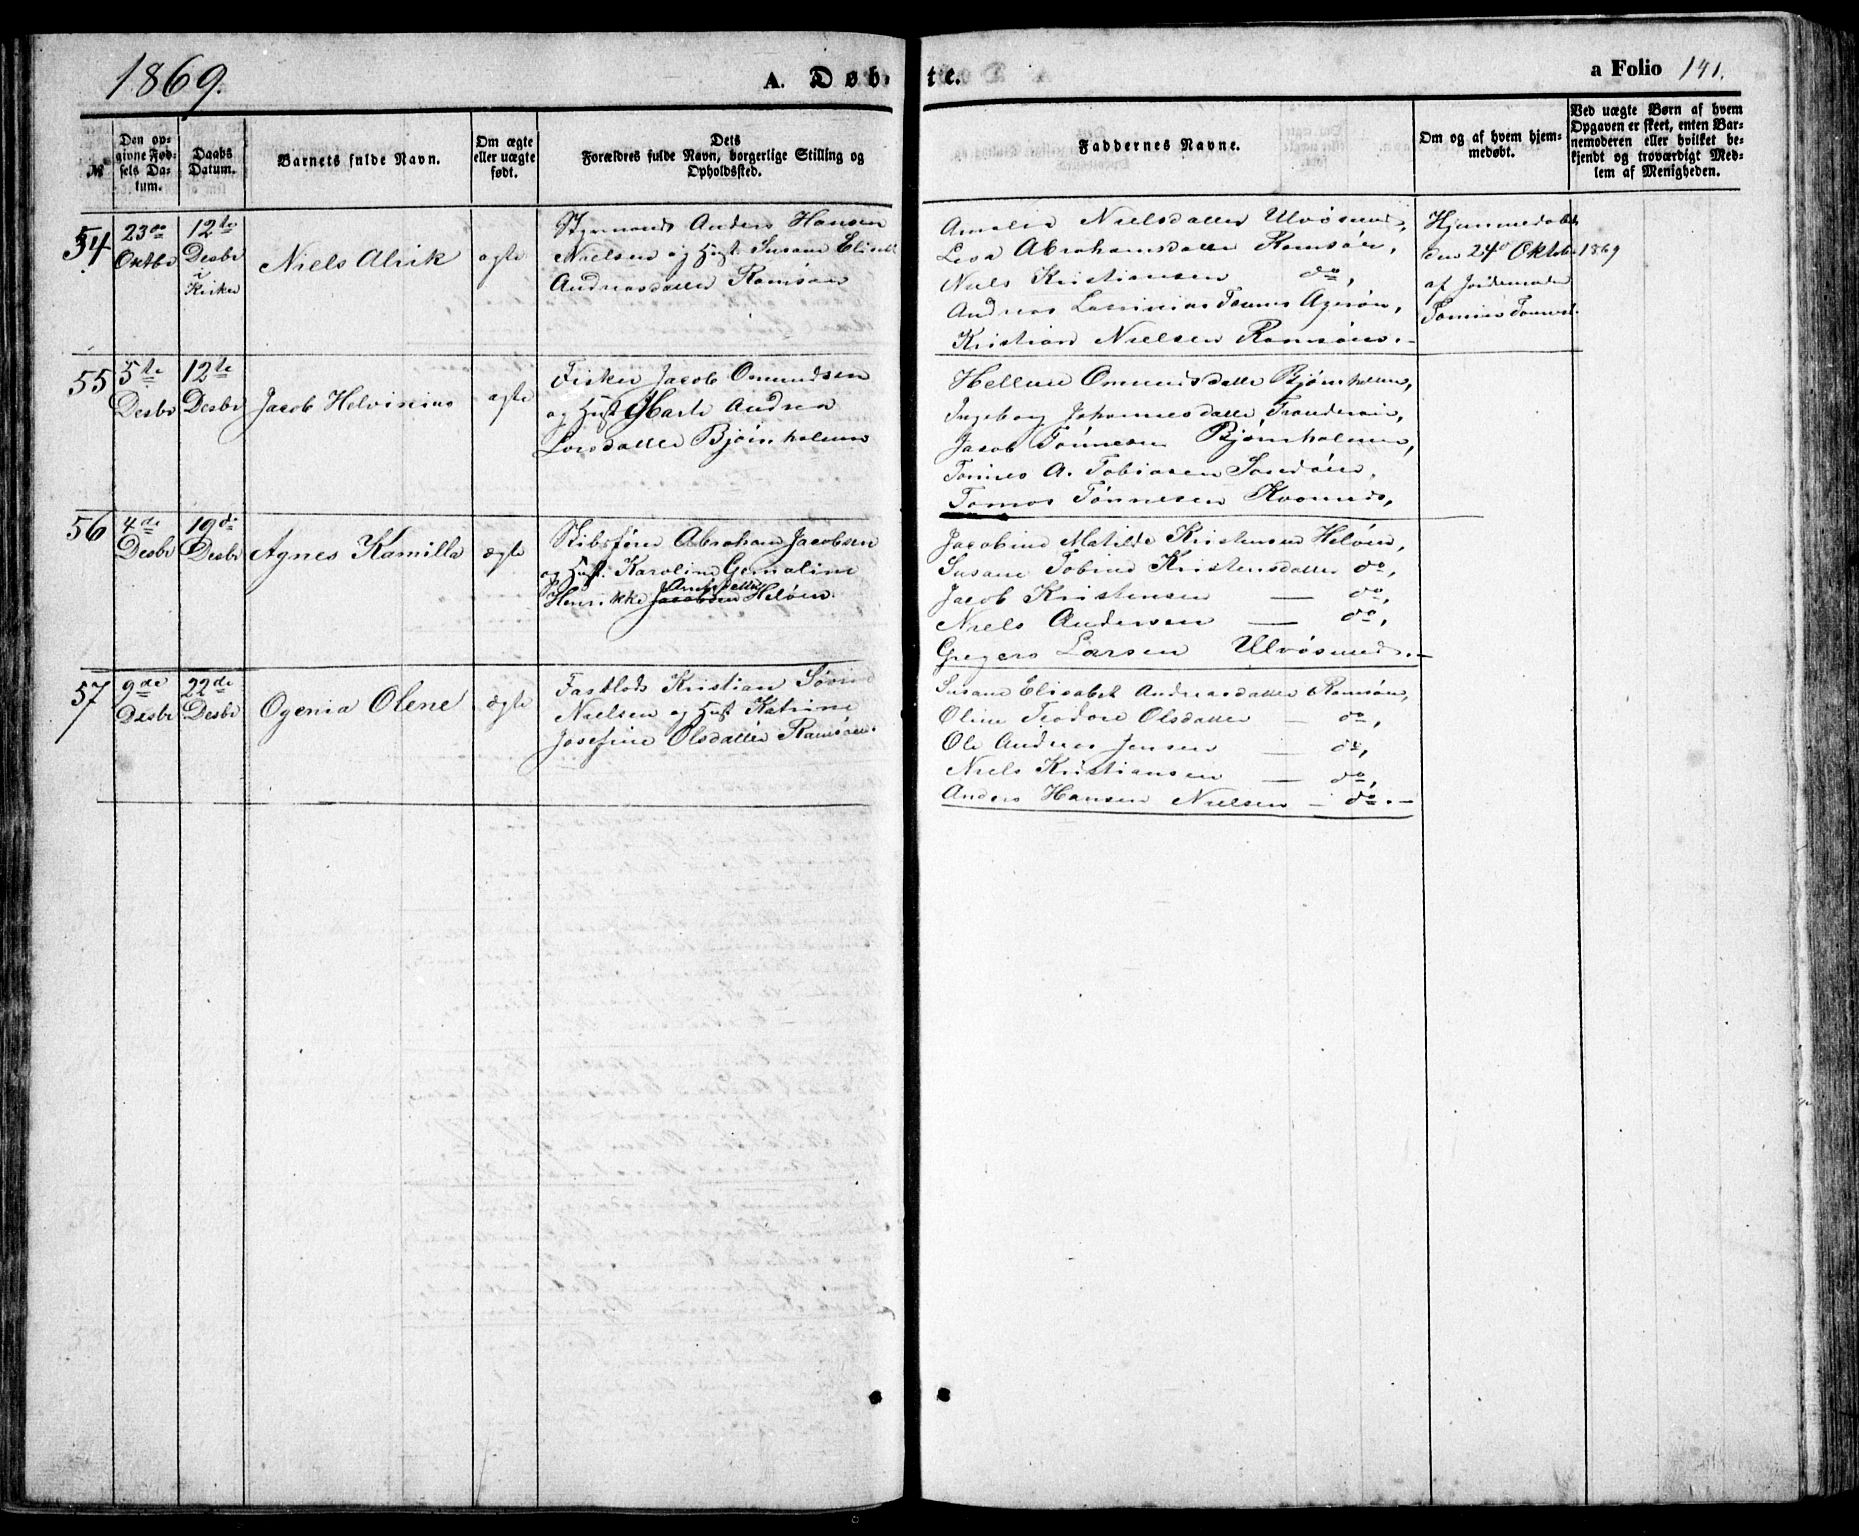 1869.
A. Døbte.
a Folio 141.
№
Den opgivne Fødsels Datum.
Daabs Datum.
Barnets fulde Navn.
Om ægte eller uægte født.
Dets Forældres fulde Navn, borgerlige Stilling og Opholdssted.
Faddernes Navne.
Om og af hvem hjemmedøbt.
Ved uægte Børn af hvem Opgaven er skeet, enten Barnemoderen eller hvilket bekjendt og troværdigt Medlem af Menigheden.
54
23de Oktbr
12te Desbr i Kirken
Niels Alrik
ægte
Styrmands Anders Hansen
Nielsen og Hust. Susane
Andreasdatter Ramsøen
Amalia Nielsdatter Ulvøsund,
Lesa Abrahamsdatter Ramsøen,
Niels Kristiansen do,
Andreas Tønnes Agerøn,
Kristian Nielsen Ramsøen.
Hjemmedøbt
den 24de Oktober 1869
af Jordemoder
55
5te Desbr
12te Desbr
Jacob Helvinius
ægte
Fisker Jacob Omundsen
og Hust Marte Andrea
Larsdatter Bjørnholmen
Hellene Omundsdatter Bjørnholmen,
Ingeborg Johannesdatter
Jacob Tønnesen Bjørnholmen,
Tønnes A. Tobiasen
Tomas Tønnesen
56
4de Desbr
19de Desbr
Agnes Kamilla
ægte
Skibsfører Abraham Jacobsen
og Hust. Karoline
Henrikke Jacobsen Heløen
Jacobine Matilde Kristensen Heløen,
Susane Kristensdatter do,
Jacob Kristensen — do,
Niels Andersen — do,
Gregers Larsen Ulvøsund.—
57
9de Desbr
22de Desbr
Ogenia Olene
ægte
Fastlods Kristian
Nielsen og Hust Katrine
Josefine Olsdatter Ramsøen.
Susane Elisabet Andreasdatter Ramsøen,
Oline Teodore Olsdatter — do,
Ole Andreas Jensen — do,
Niels Kristiansen — do,
Anders Hansen Nielsen — do.—